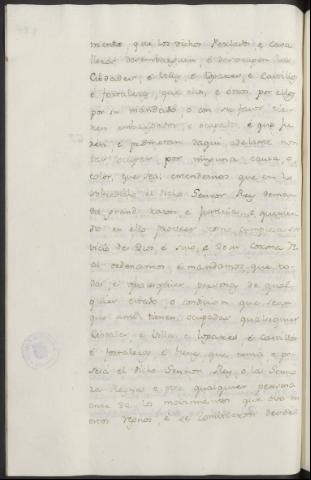 miento, que los dichos Perlados e cava
lleros desembarguen, é dexen
Cibdades, é Villas, é Logares, é Castillos
é fortalezas, que ellos, é otros por ellos
por su mandado, o con su favor tie
nen embargados, é ocupados, é que ju
ren é prometan daqui adelante non
las ocupar, por ninguna causa, o
color, que sea: entendemos que en lo
sobredicho el dicho Señor Rey deman
da grand razon é justicia, é querien
do en ello proveer como cumple a ser
vicio de Dios, é suyo, é de su Corona Re
al ordenamos, é mandamos, que to
das, é qualesquier personas de qual
quier estado, o condicion que sean
que ansi tienen ocupadas qualesquier
Cibdades é Villas é Logares, é Castillos
é fortalezas, é tierras que tenia e po
seia el dicho Señor Rey, o la Seño
ra Reyna, e otra qualquier persona
antes de los movimientos que ovo en
estos Regnos, é se comenzaron desde